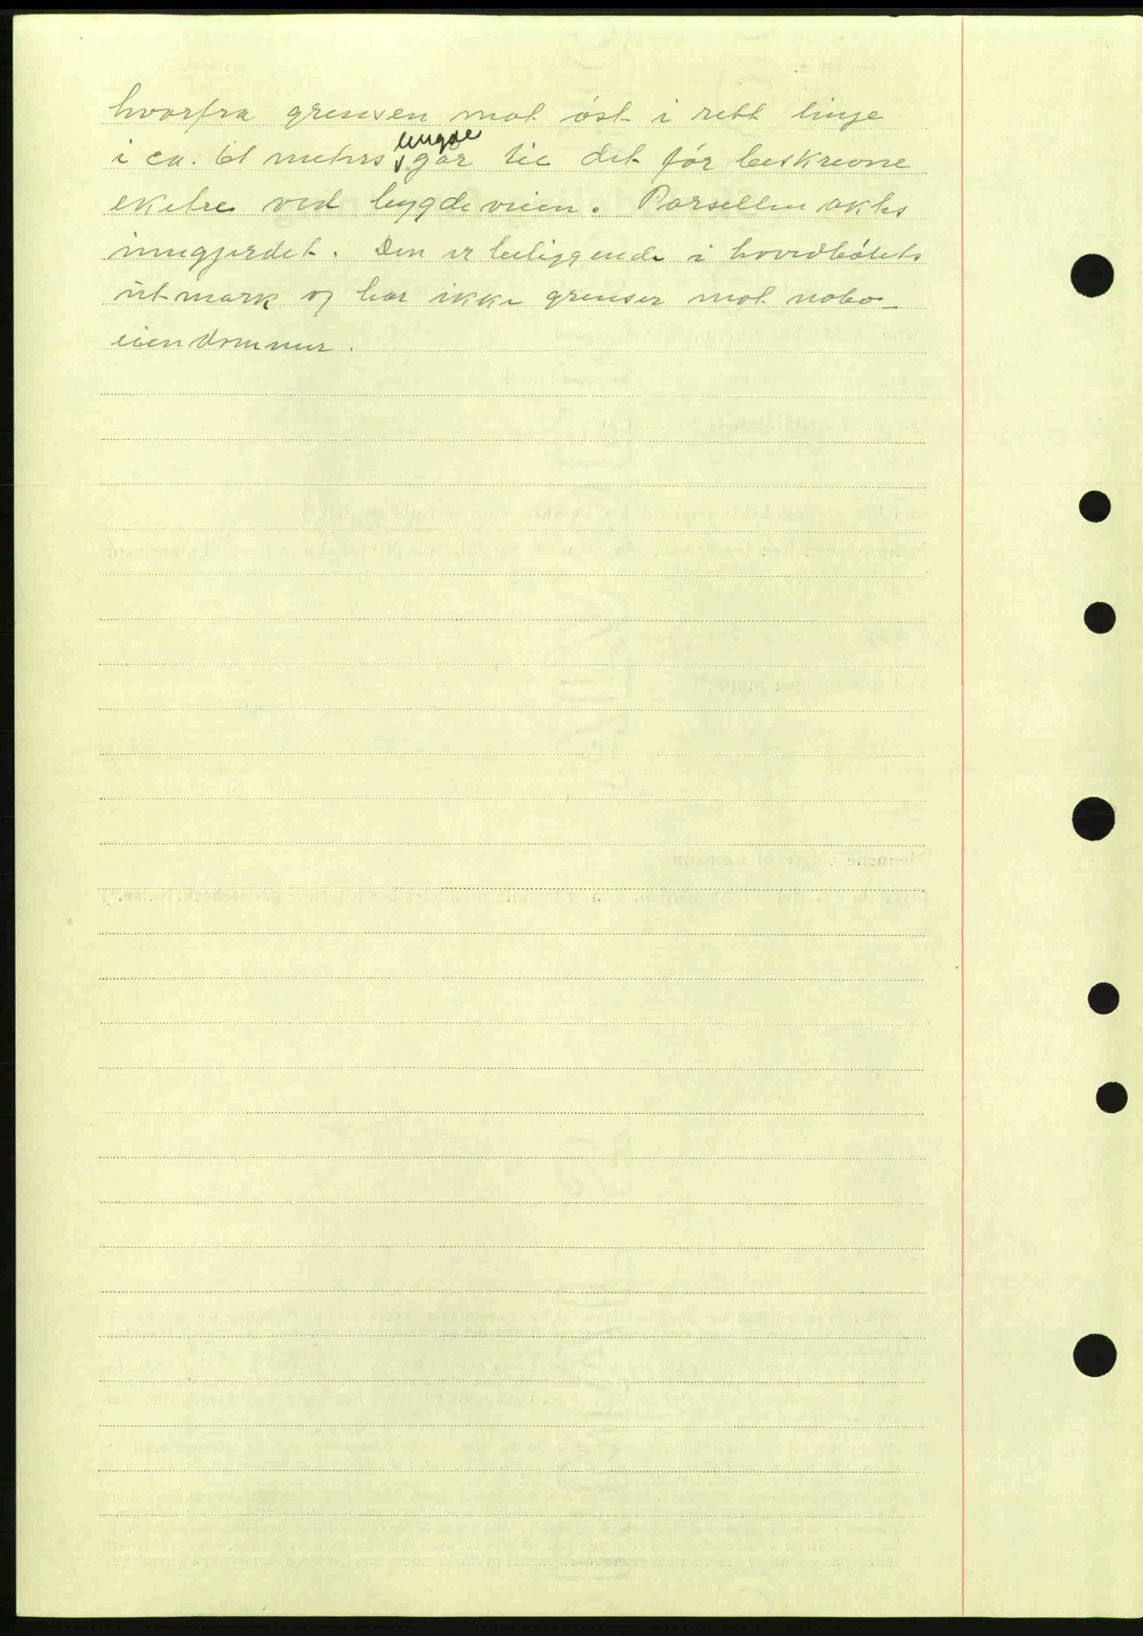 hvorfra grensen mot øst i rett linje
i ca. 61 meters lengde går til det før beskrevne
eketre ved bygdeveien. Parsellen aktes
inngjerdet. Den er beliggende i hovedbølets
utmark og har ikke grenser mot nabo-
eiendommer.